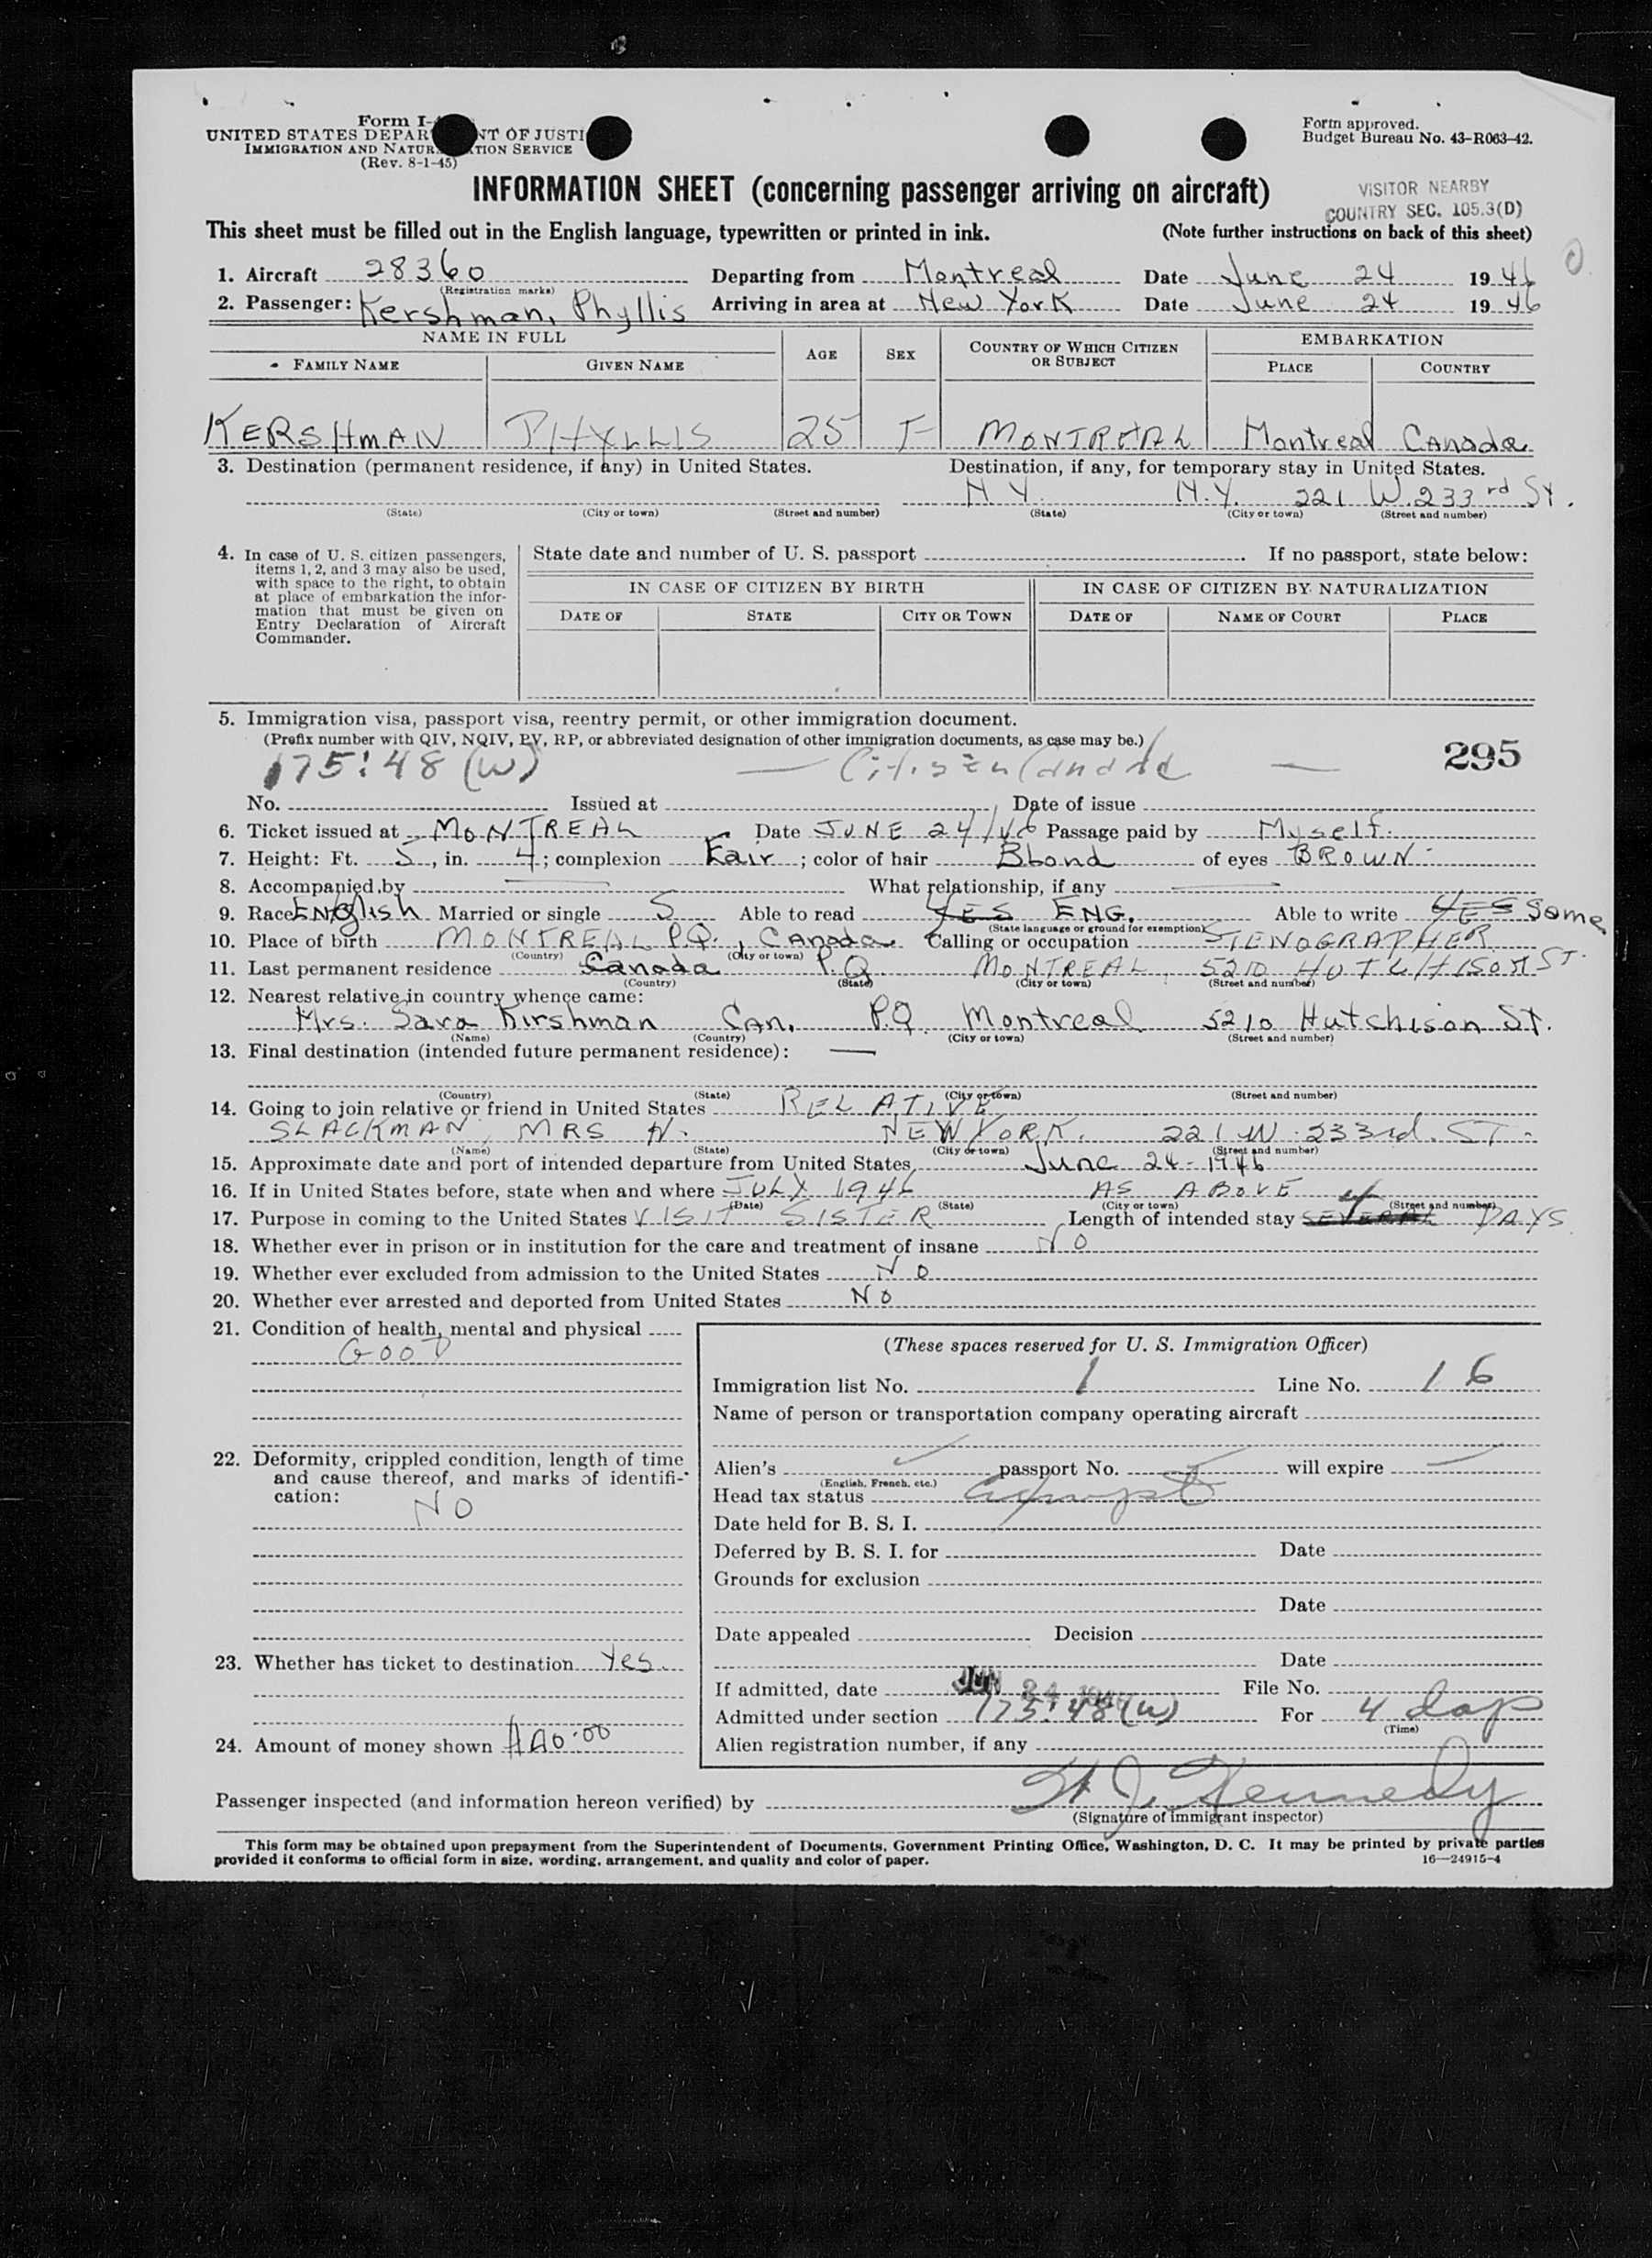 Form I-
UNITED STATES DEPAR NT OF JUSTI
IMMIGRATION AND NATUR TION SERVICE
(Rev. 8-1-45)
Form approved.
Budget Bureau No. 43-R063-42.
INFORMATION SHEET (concerning passenger arriving on aircraft)
VISITOR NEARBY
COUNTRY SEC. 105.3(D)
This sheet must be filled out in the English language, typewritten or printed in ink. (Note further instructions on back of this sheet)
1. Aircraft 28360 Departing from Montreal Date June 24 1946
(Registration marks)
2. Passenger: Kershman, Phyllis Arriving in area at New York Date June 24 1946
NAME IN FULL AGE SEX COUNTRY OF WHICH CITIZEN OR SUBJECT EMBARKATION
FAMILY NAME GIVEN NAME PLACE COUNTRY
KERSHMAN PHYLLIS 25 F MONTREAL Montreal Canada
3. Destination (permanent residence, if any) in United States. Destination, if any, for temporary stay in United States.
N.Y. N.Y. 221 W. 233rd St.
(State) (City or town) (Street and number) (State) (City or town) (Street and number)
4. In case of U. S. citizen passengers,
items 1, 2, and 3 may also be used,
with space to the right, to obtain
at place of embarkation the infor-
mation that must be given on
Entry Declaration of Aircraft
Commander.
State date and number of U. S. passport If no passport, state below:
IN CASE OF CITIZEN BY BIRTH IN CASE OF CITIZEN BY NATURALIZATION
DATE OF STATE CITY OR TOWN DATE OF NAME OF COURT PLACE
5. Immigration visa, passport visa, reentry permit, or other immigration document.
(Prefix number with QIV, NQIV, PV, RP, or abbreviated designation of other immigration documents, as case may be.)
295
175:48 (W) — Citizen Canada —
No. Issued at Date of issue
6. Ticket issued at MONTREAL Date JUNE 24/46 Passage paid by Myself.
7. Height: Ft. 5, in. 4; complexion Fair; color of hair Blond of eyes BROWN
8. Accompanied by — What relationship, if any —
9. Race English Married or single S Able to read YES ENG. Able to write YES Same
(State language or ground for exemption)
10. Place of birth MONTREAL P.Q., Canada Calling or occupation STENOGRAPHER
(Country) (City or town)
11. Last permanent residence Canada P.Q. MONTREAL, 5210 HUTCHISON ST.
(Country) (State) (City or town) (Street and number)
12. Nearest relative in country whence came:
Mrs. Sara Kirshman Can. P.Q. Montreal 5210 Hutchison St.
(Name) (Country) (City or town) (Street and number)
13. Final destination (intended future permanent residence): —
(Country) (State) (City or town) (Street and number)
14. Going to join relative or friend in United States RELATIVE
SLACKMAN, MRS N. NEW YORK. 221 W. 233rd. ST.
(Name) (State) (City or town) (Street and number)
15. Approximate date and port of intended departure from United States June 24-1946
16. If in United States before, state when and where JULY 1946 AS ABOVE
(Date) (State) (City or town) (Street and number)
17. Purpose in coming to the United States VISIT SISTER Length of intended stay SEVERAL 4 DAYS
18. Whether ever in prison or in institution for the care and treatment of insane NO
19. Whether ever excluded from admission to the United States NO
20. Whether ever arrested and deported from United States NO
21. Condition of health, mental and physical
GOOD
22. Deformity, crippled condition, length of time
and cause thereof, and marks of identifi-
cation:
NO
23. Whether has ticket to destination Yes.
24. Amount of money shown
(These spaces reserved for U. S. Immigration Officer)
Immigration list No. 1 Line No. 16
Name of person or transportation company operating aircraft
Alien's passport No. will expire
(English, French, etc.)
Head tax status exempt
Date held for B. S. I.
Deferred by B. S. I. for Date
Grounds for exclusion
Date
Date appealed Decision
Date
If admitted, date JUN 24 1946 File No.
Admitted under section 175:48(W) For 4 days
(Time)
Alien registration number, if any
Passenger inspected (and information hereon verified) by H. J. Kennedy
(Signature of immigrant inspector)
This form may be obtained upon prepayment from the Superintendent of Documents, Government Printing Office, Washington, D. C. It may be printed by private parties
provided it conforms to official form in size, wording, arrangement, and quality and color of paper.
16—24915-4